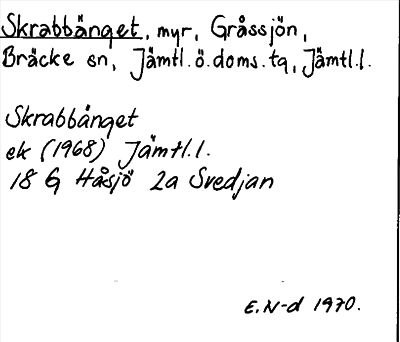 Skrabbänget, myr, Gråssjön,
Bräcke sn, Jämtl.ö.doms.tg, Jämtl.l.
Skrabbänget
ek (1968) Jämtl.l.
18 G Håsjö 2a Svedjan
E.N-d 1970.